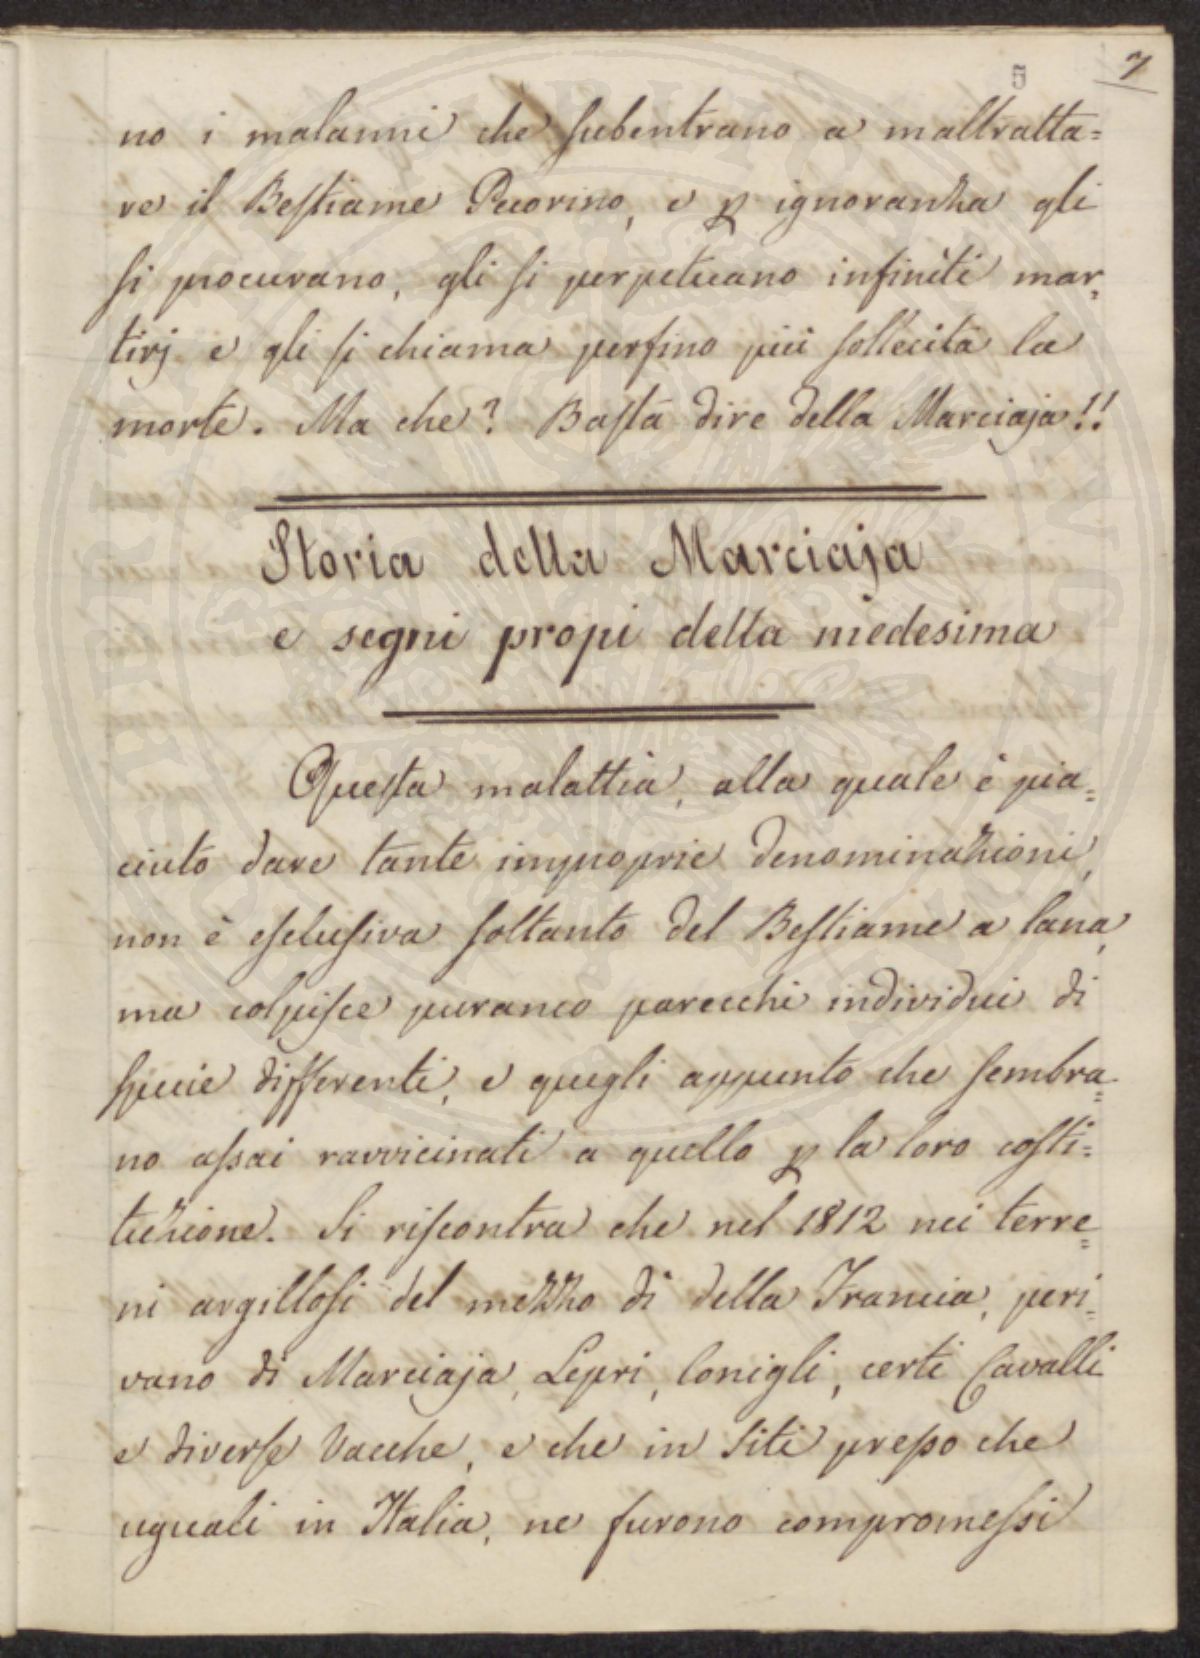 5 7
no i malanni che subentrano a maltratta=
re il Bestiame Pecorino, e p ignoranza gli
si procurano, gli si perpetuano infiniti mar=
tirj e gli si chiama perfino più sollecita la
morte. Ma che? Basta dire della Marciaja!!
Storia della Marciaja
e segni propi della medesima
Questa malattia, alla quale è pia=
ciuto dare tante improprie denominazioni,
non è esclusiva soltanto del Bestiame a lana,
ma colpisce puranco parecchi individui di
specie differenti, e quegli appunto che sembra=
no assai ravvicinati a quello p la loro costi=
tuzione. Si riscontra che nel 1812 nei terre=
ni argillosi del mezzo dì della Francia, peri=
vano di Marciaja, Lepri, Conigli, certi Cavalli
e diverse Vacche, e che in Siti presso che
uguali in Italia, ne furono compromessi